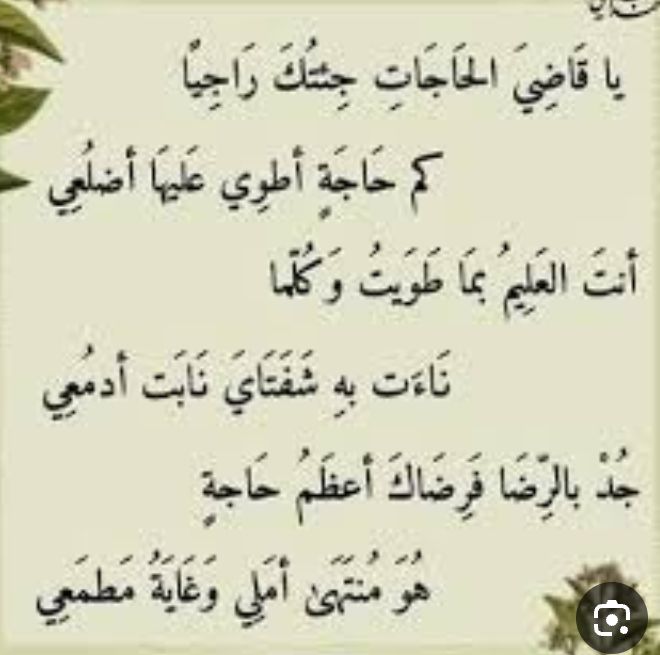 يا قَاضِيَ الحَاجَاتِ جِئتُكَ رَاجِيًا
كم حَاجَةٍ أطوِي عَليهَا أضلُعِي
أنتَ العَلِيمُ بمَا طَوَيتُ وَكُلّما
نَاءَت بهِ شَفَتَايَ نَابَت أدمُعِي
جُدْ بالرِّضَا فَرِضَاكَ أعظَمُ حَاجةٍ
هُوَ مُنتَهَىٰ أمَلِي وَغَايَةُ مَطمَعِي